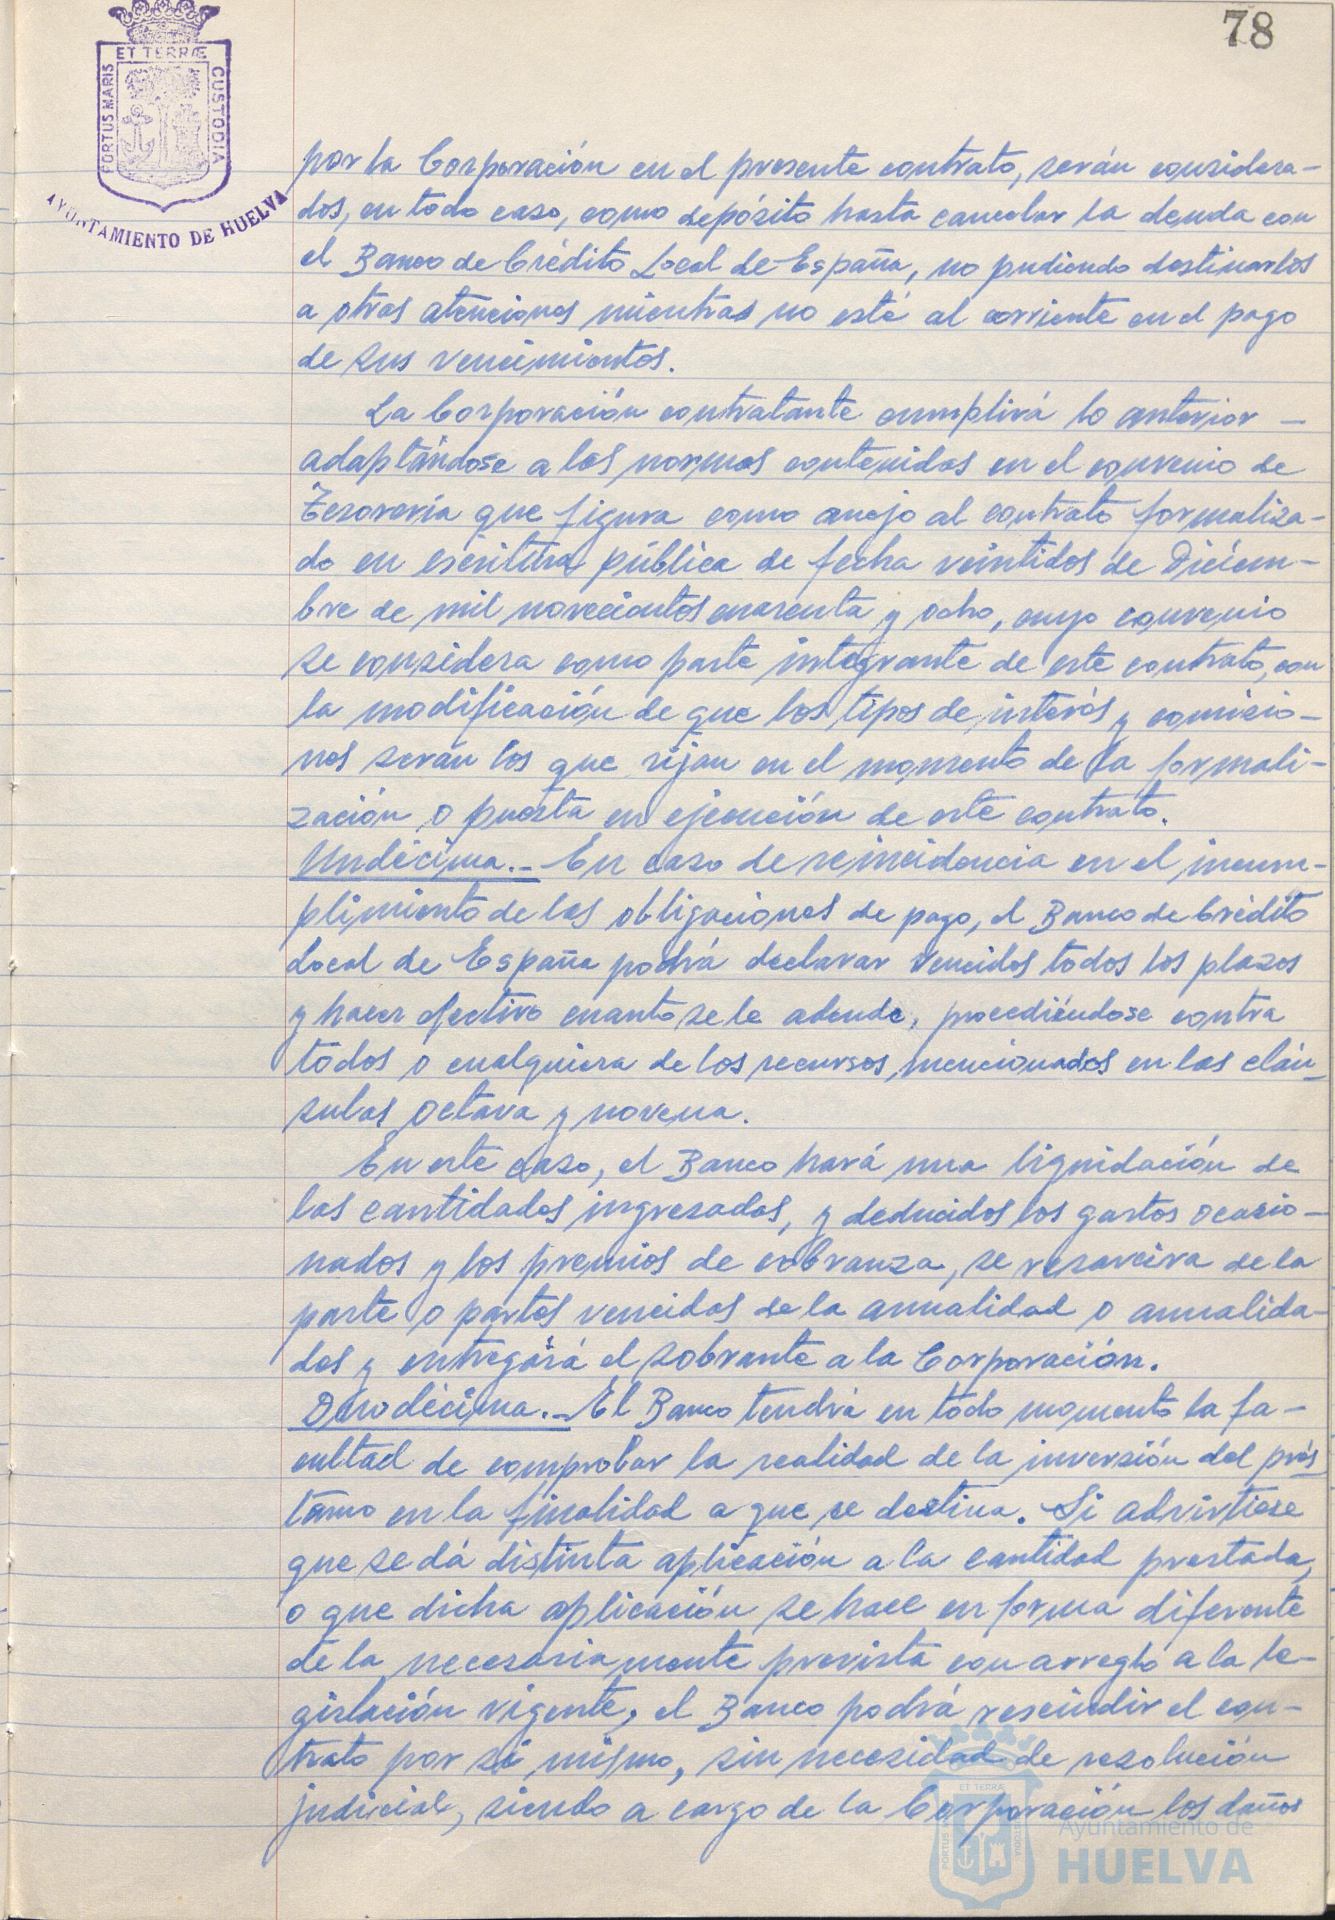 78
ET TERRÆ
PORTUS MARIS
CUSTODIA
AYUNTAMIENTO DE HUELVA
por la Corporación en el presente contrato, serán considera-
dos, en todo caso, como depósito hasta cancelar la deuda con
el Banco de Crédito Local de España, no pudiendo destinarlos
a otras atenciones mientras no esté al corriente en el pago
de sus vencimientos.
La Corporación contratante cumplirá lo anterior -
adaptándose a las normas contenidas en el convenio de
Tesorería que figura como anejo al contrato formaliza-
do en escritura pública de fecha veintidos de Diciem-
bre de mil novecientos cuarenta y ocho, cuyo convenio
se considera como parte integrante de este contrato, con
la modificación de que los tipos de interés y comisio-
nes serán los que rijan en el momento de la formali-
zación o puesta en ejecución de este contrato.
Undécima.- En caso de reincidencia en el incum-
plimiento de las obligaciones de pago, el Banco de Crédito
Local de España podrá declarar vencidos todos los plazos
y hacer efectivo cuanto se le adeude, procediéndose contra
todos o cualquiera de los recursos mencionados en las cláu-
sulas octava y novena.
En este caso, el Banco hará una liquidación de
las cantidades ingresadas, y deducidos los gastos ocasio-
nados y los premios de cobranza, se resarcira de la
parte o partes vencidas de la anualidad o anualida-
des y entregará el sobrante a la Corporación.
Duodécima.- El Banco tendrá en todo momento la fa-
cultad de comprobar la realidad de la inversión del prés-
tamo en la finalidad a que se destina. Si advirtiese
que se dá distinta aplicación a la cantidad prestada,
o que dicha aplicación se hace en forma diferente
de la necesariamente prevista con arreglo a la le-
gislación vigente, el Banco podrá rescindir el con-
trato por sí mismo, sin necesidad de resolución
judicial, siendo a cargo de la Corporación los daños
ET TERRÆ
Ayuntamiento de
HUELVA